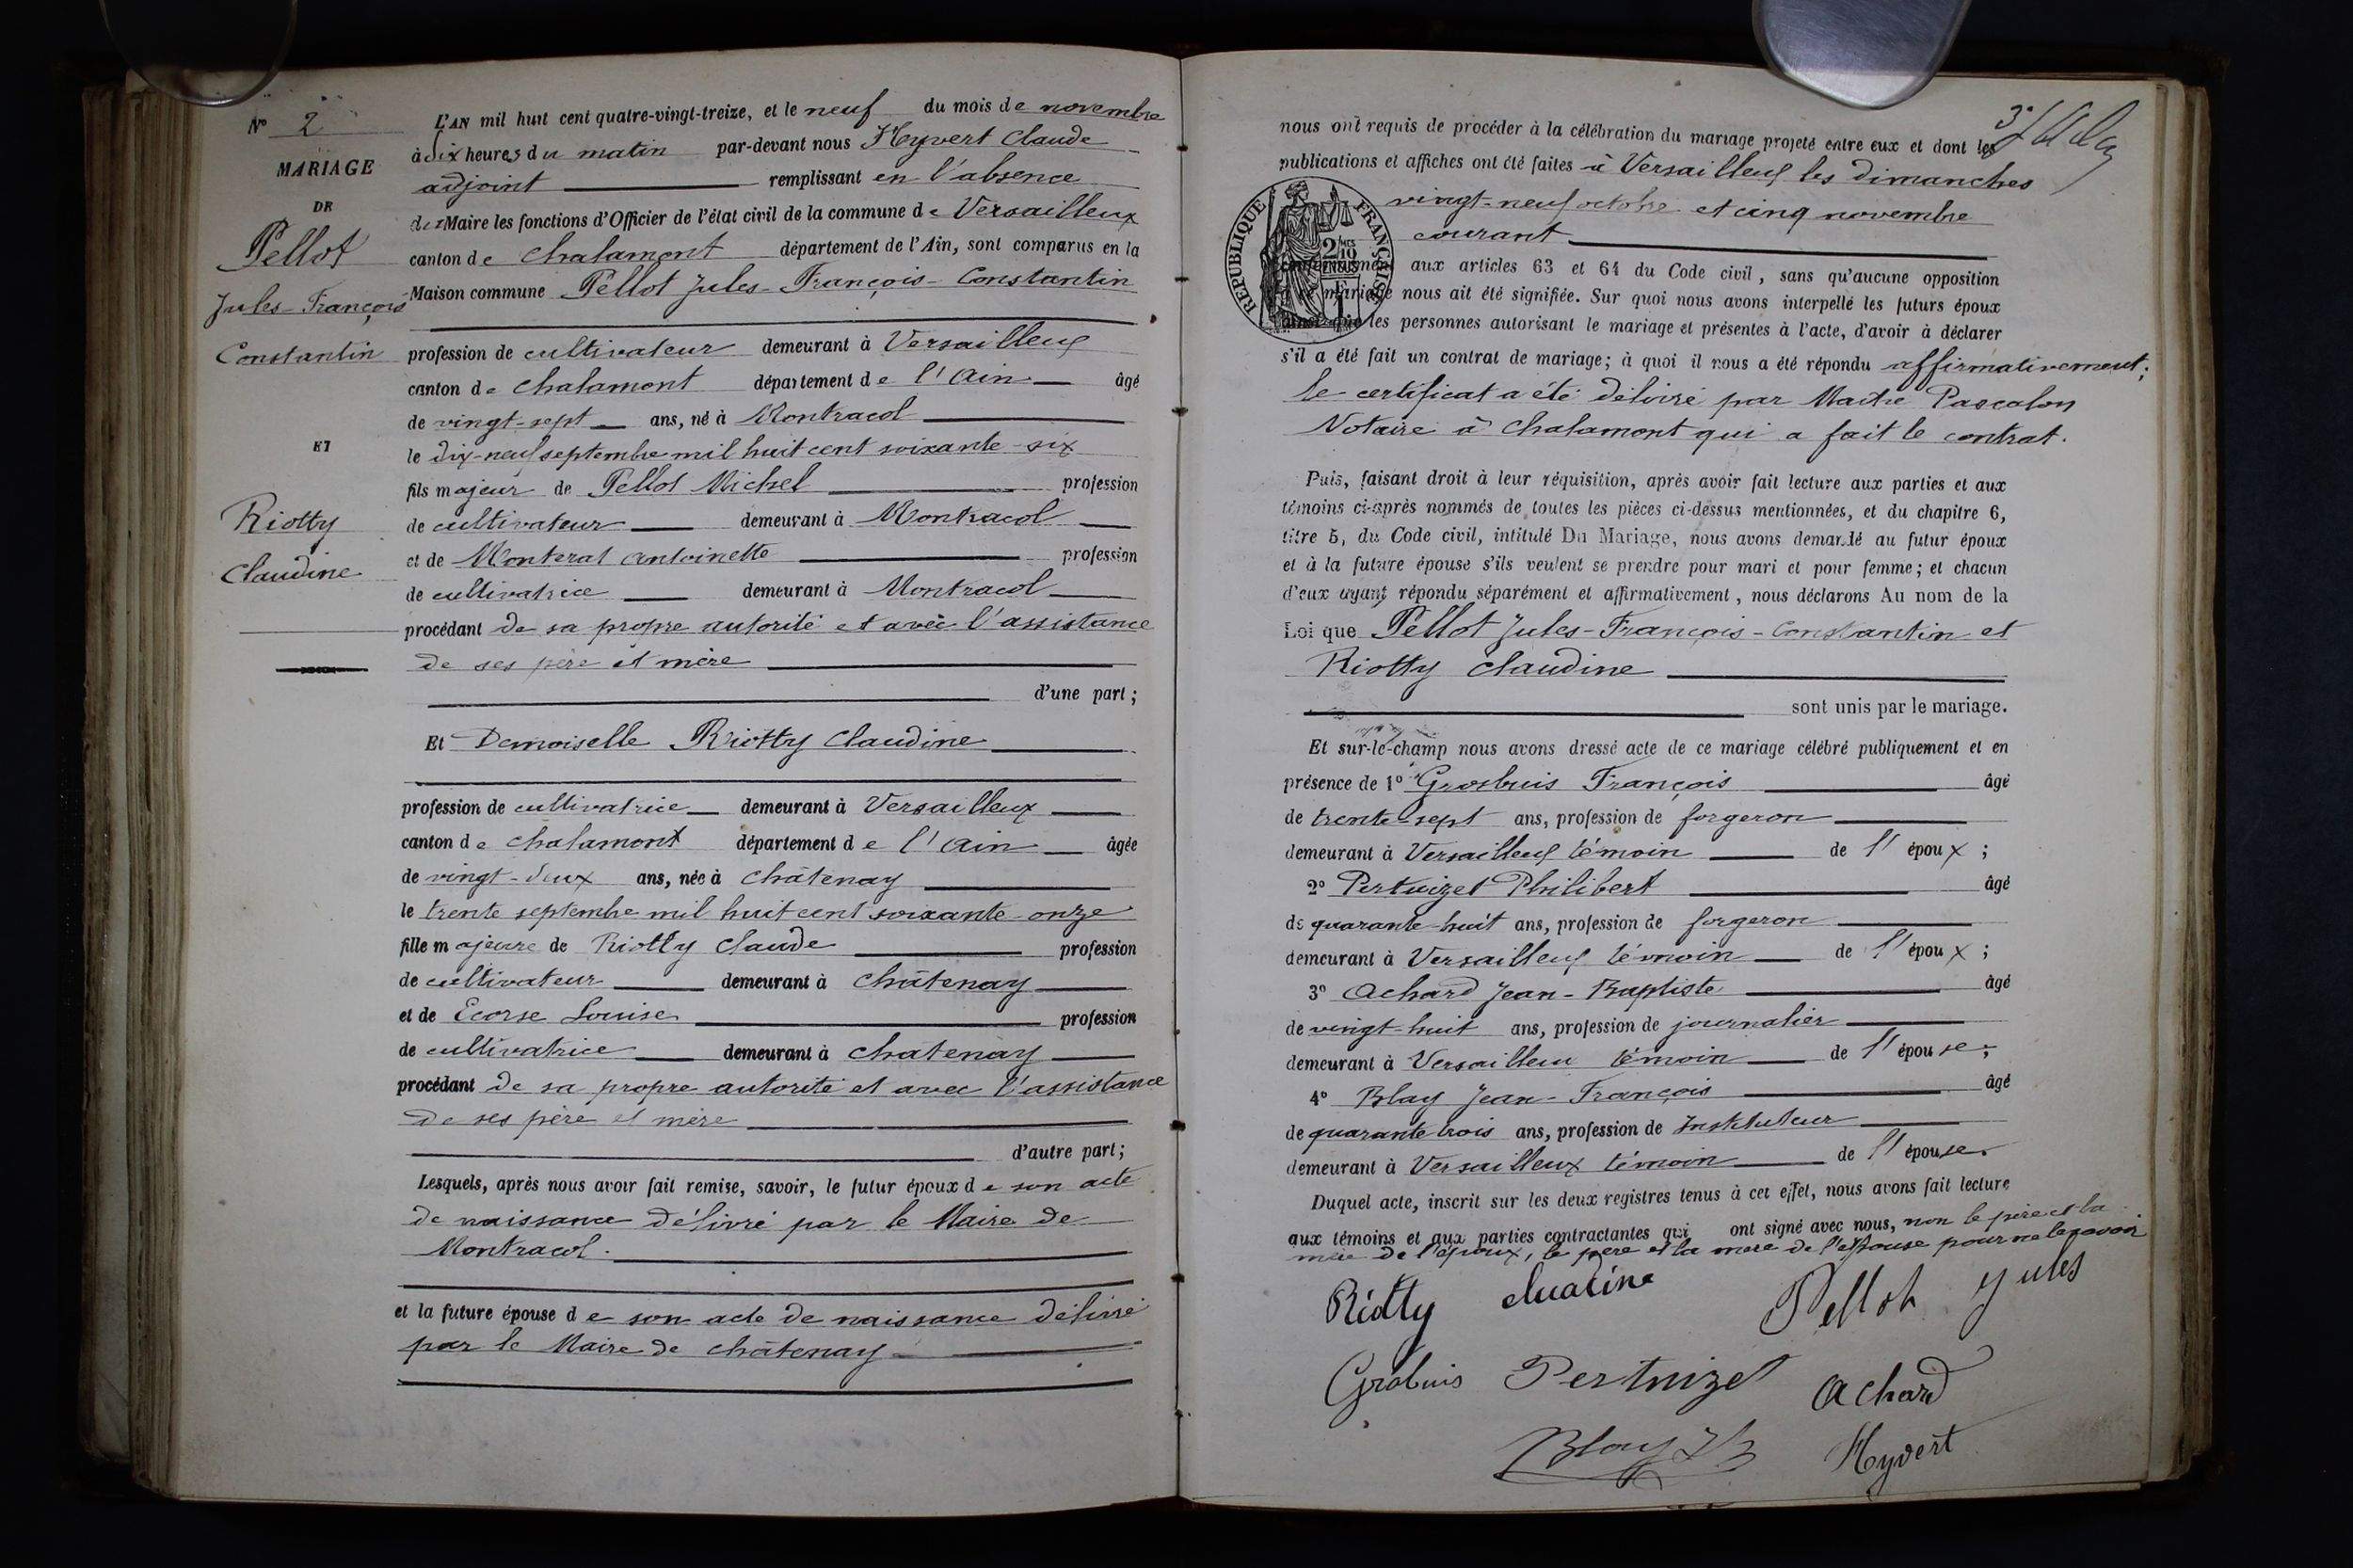 N° 2
MARIAGE
DE
Pellot
Jules-François
Constantin
ET
Riotty
Claudine
L'AN mil huit cent quatre-vingt-treize, et le neuf du mois de novembre
à dix heures du matin par-devant nous Heyvert Claude
adjoint remplissant en l'absence
du Maire les fonctions d'Officier de l'état civil de la commune de Versailleux
canton de Chalamont département de l'Ain, sont comparus en la
Maison commune Pellot Jules-François-Constantin
profession de cultivateur demeurant à Versailleux
canton de Chalamont département de l'Ain âgé
de vingt-sept ans, né à Montracol
le dix-neuf septembre mil huit cent soixante-six
fils majeur de Pellot Michel profession
de cultivateur demeurant à Montracol
et de Monterat Antoinette profession
de cultivatrice demeurant à Montracol
procédant de sa propre autorité et avec l'assistance
de ses père et mère
d'une part;
Et Demoiselle Riotty Claudine
profession de cultivatrice demeurant à Versailleux
canton de Chalamont département de l'Ain âgée
de vingt-deux ans, née à Châtenay
le trente septembre mil huit cent soixante-onze
fille majeure de Riotty Claude profession
de cultivateur demeurant à Châtenay
et de Ecorse Louise profession
de cultivatrice demeurant à Chatenay
procédant de sa propre autorité et avec l'assistance
de ses père et mère
d'autre part;
Lesquels, après nous avoir fait remise, savoir, le futur époux de son acte
de naissance délivré par le Maire de
Montracol.
et la future épouse de son acte de naissance délivré
par le Maire de Châtenay
nous ont requis de procéder à la célébration du mariage projeté entre eux et dont les
publications et affiches ont été faites à Versailleux les dimanches
vingt-neuf octobre et cinq novembre
courant
RÉPUBLIQUE FRANÇAISE
2/10
conformément aux articles 63 et 64 du Code civil, sans qu'aucune opposition
mariage nous ait été signifiée. Sur quoi nous avons interpellé les futurs époux
ainsi que les personnes autorisant le mariage et présentes à l'acte, d'avoir à déclarer
s'il a été fait un contrat de mariage; à quoi il nous a été répondu affirmativement;
le certificat a été délivré par Maître Pascalon
Notaire à Chalamont qui a fait le contrat.
Puis, faisant droit à leur réquisition, après avoir fait lecture aux parties et aux
témoins ci-après nommés de toutes les pièces ci-dessus mentionnées, et du chapitre 6,
titre 5, du Code civil, intitulé Du Mariage, nous avons demandé au futur époux
et à la future épouse s'ils veulent se prendre pour mari et pour femme; et chacun
d'eux ayant répondu séparément et affirmativement, nous déclarons Au nom de la
Loi que Pellot Jules-François-Constantin et
Riotty Claudine
sont unis par le mariage.
Et sur-le-champ nous avons dressé acte de ce mariage célébré publiquement et en
présence de 1° Grosbuis François âgé
de trente-sept ans, profession de forgeron
demeurant à Versailleux témoin de l'époux;
2° Pertuizet Philibert âgé
de quarante-huit ans, profession de forgeron
demeurant à Versailleux témoin de l'époux;
3° Achard Jean-Baptiste âgé
de vingt-huit ans, profession de journalier
demeurant à Versailleux témoin de l'épouse;
4° Blay Jean-François âgé
de quarante trois ans, profession de Instituteur
demeurant à Versailleux témoin de l'épouse.
Duquel acte, inscrit sur les deux registres tenus à cet effet, nous avons fait lecture
aux témoins et aux parties contractantes qui ont signé avec nous, non le père et la
mère de l'époux, le père et la mère de l'épouse pour ne le savoir
Riotty Cluadine Pellot Jules
Grobuis Pertuizet Achard
Blay Heyvert